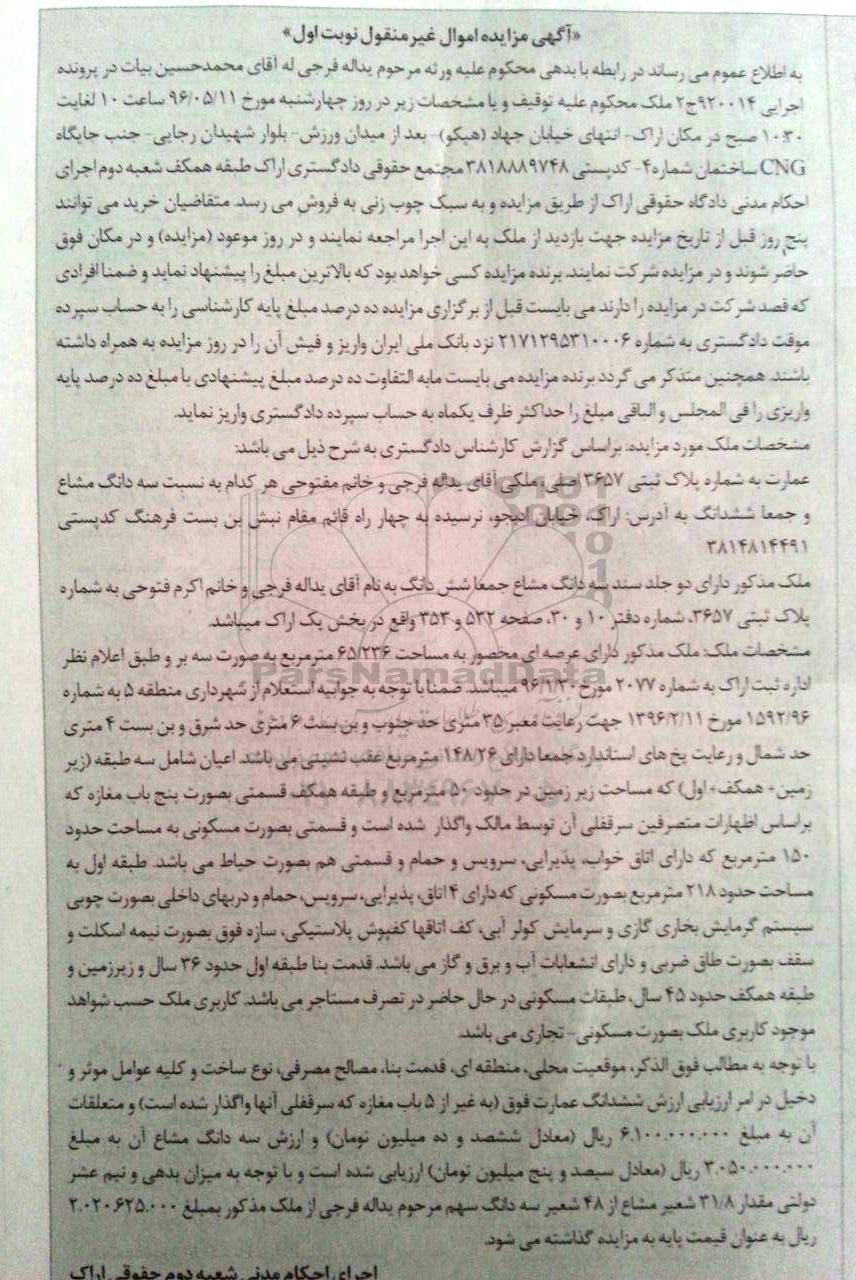 «آگهی مزایده اموال غیر منقول نوبت اول»
به اطلاع عموم می رساند در رابطه با بدهی محکوم علیه ورثه مرحوم یداله فرجی له آقای محمدحسین بیات در پرونده
اجرایی ۹۲۰۰۱۴ج۲ ملک محکوم علیه توقیف و یا مشخصات زیر در روز چهارشنبه مورخ ۹۶/۰۵/۱۱ ساعت ۱۰ لغایت
۱۰:۳۰ صبح در مکان اراک- انتهای خیابان جهاد (هپکو)- بعد از میدان ورزش- بلوار شهیدان رجایی- جنب جایگاه
CNG ساختمان شماره۴- کدپستی ۳۸۱۸۸۸۹۷۴۸ مجتمع حقوقی دادگستری اراک طبقه همکف شعبه دوم اجرای
احکام مدنی دادگاه حقوقی اراک از طریق مزایده و به سبک چوب زنی به فروش می رسد. متقاضیان خرید می توانند
پنج روز قبل از تاریخ مزایده جهت بازدید از ملک به این اجرا مراجعه نمایند و در روز موعود (مزایده) و در مکان فوق
حاضر شوند و در مزایده شرکت نمایند. برنده مزایده کسی خواهد بود که بالاترین مبلغ را پیشنهاد نماید و ضمنا افرادی
که قصد شرکت در مزایده را دارند می بایست قبل از برگزاری مزایده ده درصد مبلغ پایه کارشناسی را به حساب سپرده
موقت دادگستری به شماره ۲۱۷۱۲۹۵۳۱۰۰۰۶ نزد بانک ملی ایران واریز و فیش آن را در روز مزایده به همراه داشته
باشند. همچنین متذکر می گردد برنده مزایده می بایست مابه التفاوت ده درصد مبلغ پیشنهادی با مبلغ ده درصد پایه
واریزی را فی المجلس و الباقی مبلغ را حداکثر ظرف یکماه به حساب سپرده دادگستری واریز نماید.
مشخصات ملک مورد مزایده: براساس گزارش کارشناس دادگستری به شرح ذیل می باشد:
عمارت به شماره پلاک ثبتی ۳۶۵۷ اصلی، ملکی آقای یداله فرجی و خانم مفتوحی هر کدام به نسبت سه دانگ مشاع
و جمعا ششدانگ به آدرس: اراک، خیابان ادبجو، نرسیده به چهار راه قائم مقام نبش بن بست فرهنگ کدپستی
۳۸۱۴۸۱۴۴۹۱
ملک مذکور دارای دو جلد سند سه دانگ مشاع جمعا شش دانگ به نام آقای یداله فرجی و خانم اکرم فتوحی به شماره
پلاک ثبتی ۳۶۵۷، شماره دفتر ۱۰ و ۳۰، صفحه ۵۳۲ و ۳۵۳ واقع در بخش یک اراک میباشد.
مشخصات ملک: ملک مذکور دارای عرصه ای محصور به مساحت ۶۵/۲۳۶ مترمربع به صورت سه بر و طبق اعلام نظر
ParsNamadData
اداره ثبت اراک به شماره ۲۰۷۷ مورخ ۹۶/۱/۳۰ میباشد. ضمنا با توجه به جوابیه استعلام از شهرداری منطقه ۵ به شماره
۱۵۹۲/۹۶ مورخ ۱۳۹۶/۲/۱۱ جهت رعایت معبر ۳۵ متری حد جنوب و بن بست ۶ متری حد شرق و بن بست ۴ متری
حد شمال و رعایت پخ های استاندارد جمعا دارای ۱۴۸/۲۶ مترمربع عقب نشینی می باشد. اعیان شامل سه طبقه (زیر
زمین+ همکف+ اول) که مساحت زیر زمین در حدود ۵۰ مترمربع و طبقه همکف قسمتی بصورت پنج باب مغازه که
براساس اظهارات متصرفین سرقفلی آن توسط مالک واگذار شده است و قسمتی بصورت مسکونی به مساحت حدود
۱۵۰ مترمربع که دارای اتاق خواب، پذیرایی، سرویس و حمام و قسمتی هم بصورت حیاط می باشد. طبقه اول به
مساحت حدود ۲۱۸ مترمربع بصورت مسکونی که دارای ۴ اتاق، پذیرایی، سرویس، حمام و دربهای داخلی بصورت چوبی
سیستم گرمایش بخاری گازی و سرمایش کولر آبی، کف اتاقها کفپوش پلاستیکی، سازه فوق بصورت نیمه اسکلت و
سقف بصورت طاق ضربی و دارای انشعابات آب و برق و گاز می باشد. قدمت بنا طبقه اول حدود ۳۶ سال و زیرزمین و
طبقه همکف حدود ۴۵ سال، طبقات مسکونی در حال حاضر در تصرف مستاجر می باشد. کاربری ملک حسب شواهد
موجود کاربری ملک بصورت مسکونی- تجاری می باشد.
با توجه به مطالب فوق الذکر، موقعیت محلی، منطقه ای، قدمت بنا، مصالح مصرفی، نوع ساخت و کلیه عوامل موثر و
دخیل در امر ارزیابی ارزش ششدانگ عمارت فوق (به غیر از ۵ باب مغازه که سرقفلی آنها واگذار شده است) و متعلقات
آن به مبلغ ۶.۱۰۰.۰۰۰.۰۰۰ ریال (معادل ششصد و ده میلیون تومان) و ارزش سه دانگ مشاع آن به مبلغ
۳.۰۵۰.۰۰۰.۰۰۰ ریال (معادل سیصد و پنج میلیون تومان) ارزیابی شده است و با توجه به میزان بدهی و نیم عشر
دولتی مقدار ۳۱/۸ شعیر مشاع از ۴۸ شعیر سه دانگ سهم مرحوم یداله فرجی از ملک مذکور بمبلغ ۲.۰۲۰.۶۲۵.۰۰۰
ریال به عنوان قیمت پایه به مزایده گذاشته می شود.
اجرای احکام مدنی شعبه دوم حقوقی اراک